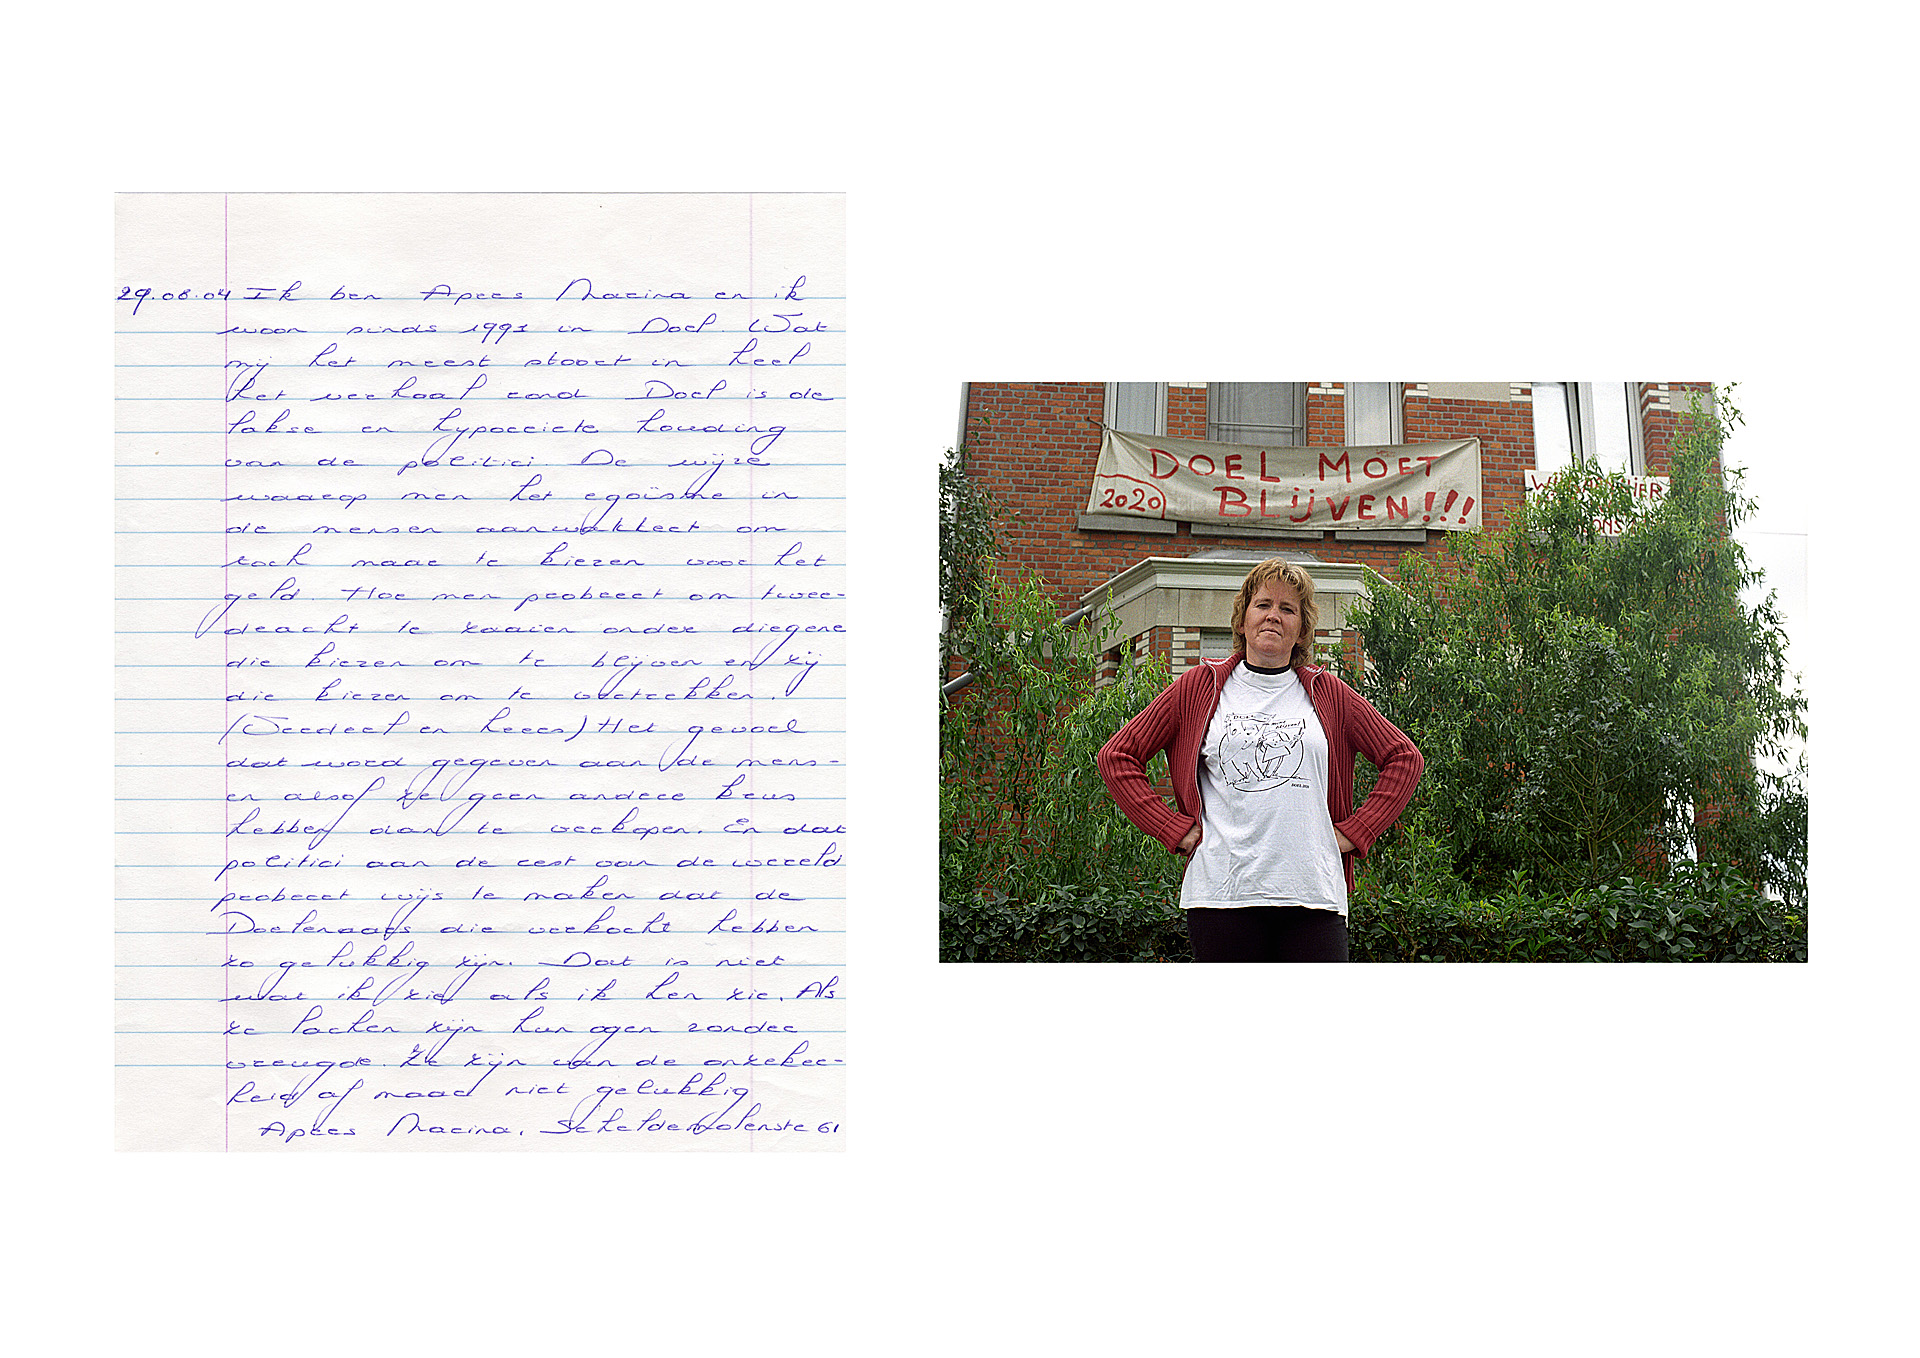 29.08.04 Ik ben Apers Marina en ik
woon sinds 1991 in Doel. Wat
mij het meest stoort in heel
het verhaal rond Doel is de
fakse en hypocriete houding
van de politici. De wijze
waarop men het egoïsme in
de mensen aanwakkert om
toch maar te kiezen voor het
geld. Hoe men probeert om twee-
dracht te zaaien onder diegene
die kiezen om te blijven en zij
die kiezen om te vertrekken.
(Verdeel en heers) Het gevoel
dat word gegeven aan de mens-
en alsof ze geen andere keus
hebben dan te verkopen. En dat
politici aan de rest van de wereld
probeert wijs te maken dat de
Doelenaars die verkocht hebben
zo gelukkig zijn. Dat is niet
wat ik zie als ik hen zie. Als
ze lachen zijn hun ogen zonder
vreugde. Ze zijn van de onzeker-
heid af maar niet gelukkig
Apers Marina, Scheldemolenstr 61
DOEL MOET
2020 BLIJVEN!!!
HIER
ONS